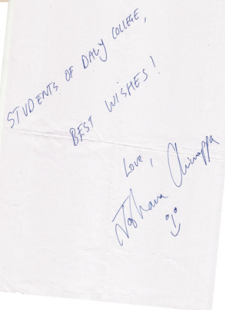 STUDENTS OF DALY COLLEGE,
BEST WISHES!
Love,
Joshna Chinappa